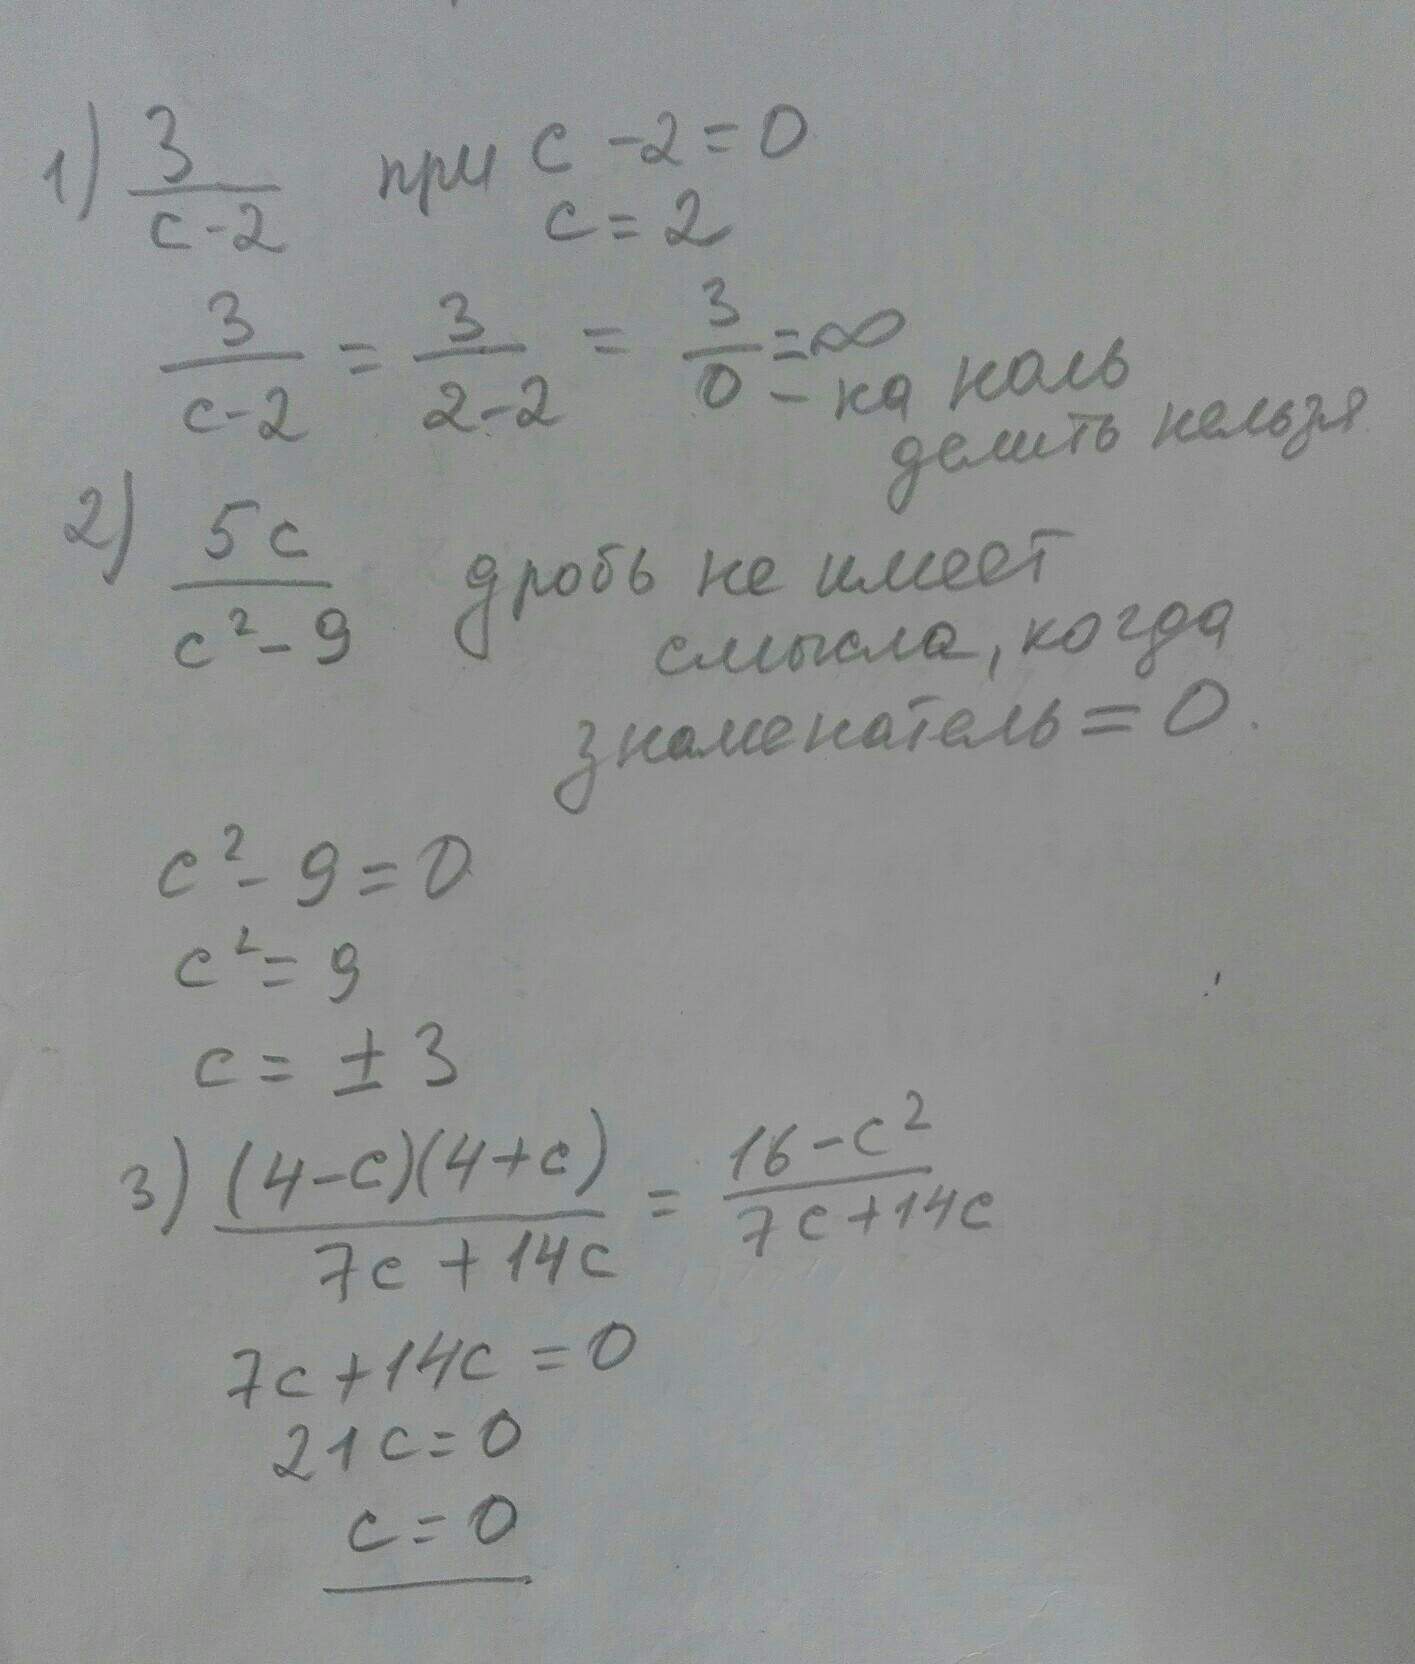 1) 3/(c-2) при c-2=0
c=2
3/(c-2) = 3/(2-2) = 3/0 = ∞
- на ноль
делить нельзя
2) 5c/(c²-9) дробь не имеет
смысла, когда
знаменатель = 0.
c²-9=0
c²=9
c=±3
3) (4-c)(4+c)/(7c+14c) = (16-c²)/(7c+14c)
7c+14c=0
21c=0
c=0